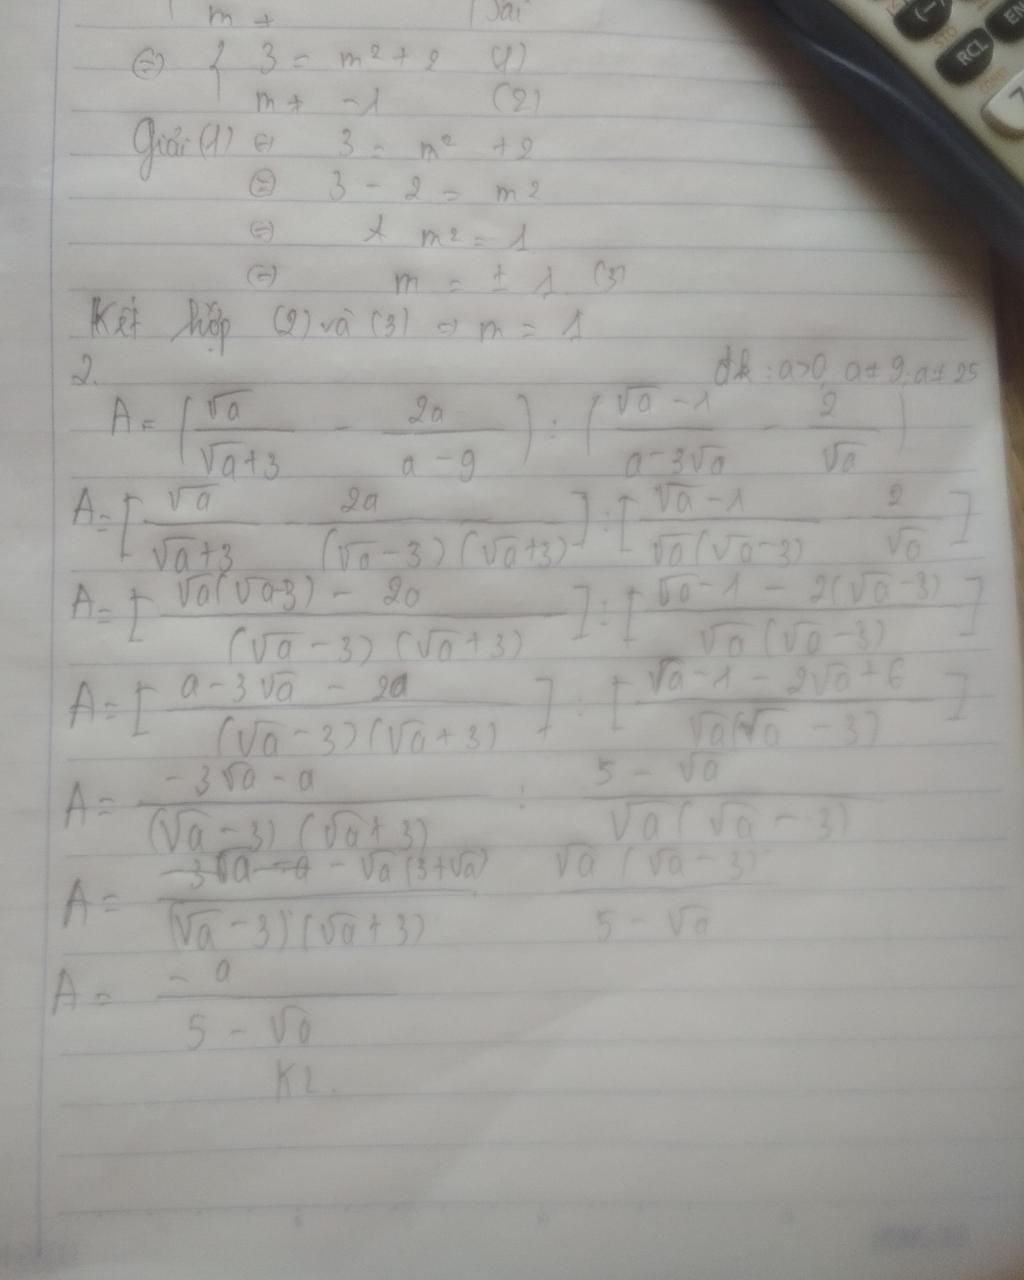 m ≠
⇔ { 3 = m² + 2 (1)
m ≠ -1 (2)
Giải (1) ⇔ 3 = m² + 2
⇔ 3 - 2 = m²
⇔ m² = 1
⇔ m = ± 1 (3)
Kết hợp (2) và (3) ⇒ m = 1
2. đk : a>0, a≠9, a≠25
A = (√a/(√a+3) - 2a/(a-9)) : ((√a-1)/(a-3√a) - 2/√a)
A = [√a/(√a+3) - 2a/((√a-3)(√a+3))] : [(√a-1)/(√a(√a-3)) - 2/√a]
A = [(√a(√a-3) - 2a)/((√a-3)(√a+3))] : [(√a-1-2(√a-3))/(√a(√a-3))]
A = [(a-3√a-2a)/((√a-3)(√a+3))] : [(√a-1-2√a+6)/(√a(√a-3))]
A = (-3√a-a)/((√a-3)(√a+3)) : (5-√a)/(√a(√a-3))
A = -√a(3+√a)/((√a-3)(√a+3)) √a(√a-3)/(5-√a)
A = -a/(5-√a)
KL.
RCL
STO
(-)